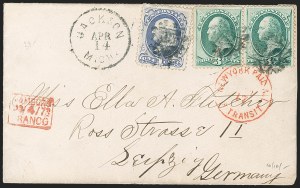 JACKSON
APR
14
MICH.
Miss Ella A. Fletcher
Ross Strasse 11
Leipzig
Germany
NEW YORK PAID ALL
TRANSIT
FRANCO